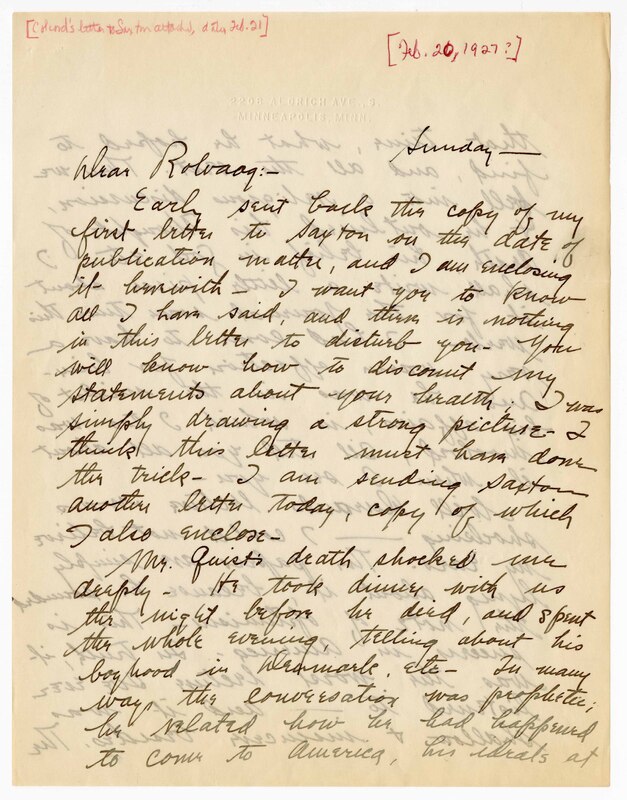 [Colcord's letter to Saxton attached, dated Feb. 21]
[Feb. 20, 1927?]
2208 ALDRICH AVE. S.
MINNEAPOLIS, MINN.
Sunday—
Dear Rolvaag:-
Early sent back the copy of my
first letter to Saxton on the date of
publication matter, and I am enclosing
it herewith - I want you to know
all I have said, and there is nothing
in this letter to disturb you - You
will know how to discount my
statements about your health. I was
simply drawing a strong picture - I
think this letter must have done
the trick - I am sending Saxton
another letter today, copy of which
I also enclose -
Mr. Quist's death shocked me
deeply - He took dinner with us
the night before he died, and spent
the whole evening, telling about his
boyhood in Denmark, etc - In many
ways the conversation was prophetic;
he related how he had happened
to come to America, his ideals at